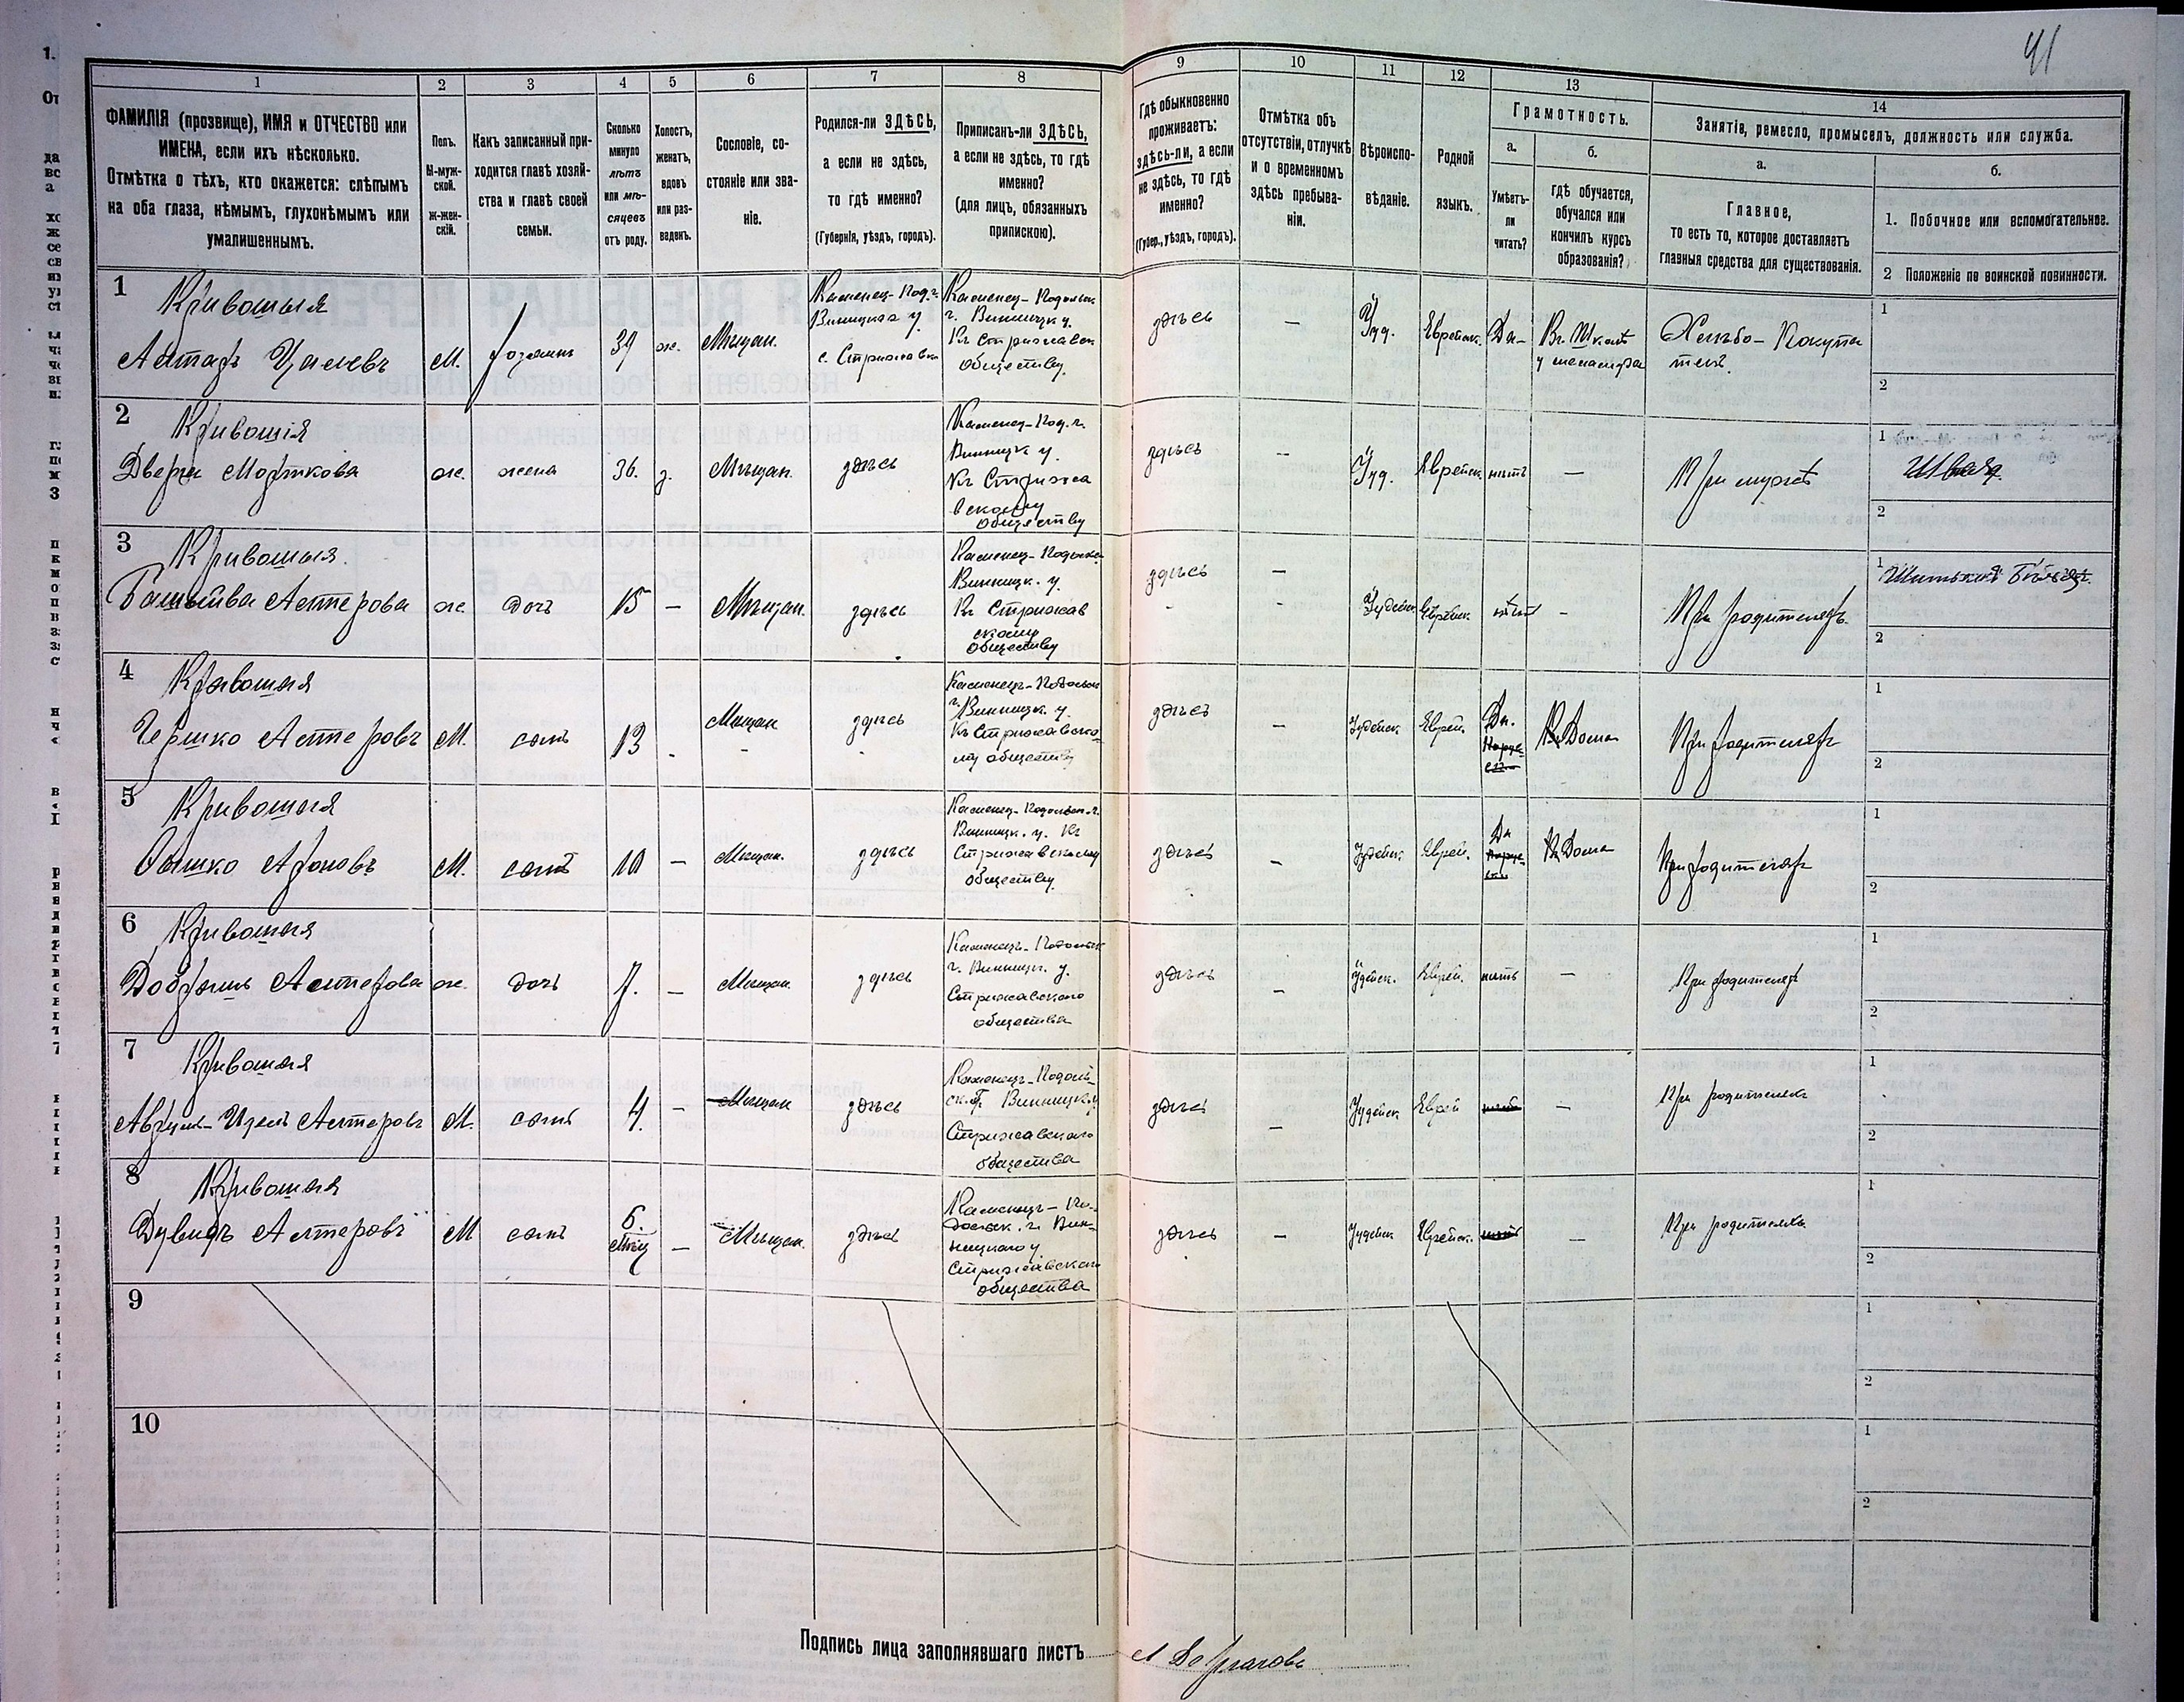 41
1 2 3 4 5 6 7 8 9 10 11 12 13 14
ФАМИЛІЯ (прозвище), ИМЯ и ОТЧЕСТВО или
ИМЕНА, если ихъ нѣсколько.
Отмѣтка о тѣхъ, кто окажется: слѣпымъ
на оба глаза, нѣмымъ, глухонѣмымъ или
умалишеннымъ.
Полъ.
М-муж-
ской.
Ж-жен-
скій.
Какъ записанный при-
ходится главѣ хозяй-
ства и главѣ своей
семьи.
Сколько
минуло
лѣтъ
или мѣ-
сяцевъ
отъ роду.
Холостъ,
женатъ,
вдовъ
или раз-
веденъ.
Сословіе, со-
стояніе или зва-
ніе.
Родился-ли ЗДѢСЬ,
а если не здѣсь,
то гдѣ именно?
(Губернія, уѣздъ, городъ).
Приписанъ-ли ЗДѢСЬ,
а если не здѣсь, то гдѣ
именно?
(для лицъ, обязанныхъ
припискою).
Гдѣ обыкновенно
проживаетъ:
здѣсь-ли, а если
не здѣсь, то гдѣ
именно?
(Губер., уѣздъ, городъ).
Отмѣтка объ
отсутствіи, отлучкѣ
и о временномъ
здѣсь пребыва-
ніи.
Вѣроиспо-
вѣданіе.
Родной
языкъ.
Грамотность.
а.
Умѣетъ-
ли
читать?
б.
гдѣ обучается,
обучался или
кончилъ курсъ
образованія?
Занятіе, ремесло, промыселъ, должность или служба.
а.
Главное,
то есть то, которое доставляетъ
главныя средства для существованія.
б.
1. Побочное или вспомогательное.
2 Положеніе по воинской повинности.
1
Кривошыя
М.
хозяинъ
39
ж.
Мѣщан.
Каменец-Под. г.
Виницкаго у.
с. Стрижавки
Каменец-Подольск.
г. Виницк у.
Къ Стрижавск
обществу.
здѣсь
—
Іуд.
Еврейск.
Да-
Хлѣбо-
1
2
2
Кривошія
Двера Моршкова
ж.
жена
36.
з.
Мѣщан.
здѣсь
Каменец-Под. г.
Винницк у.
Къ Стрижа
вскому
обществу
здѣсь
-
Іуд.
Еврейск.
нѣтъ
—
При мужѣ
1
Швея
2
3
Кривошыя.
Алтерова
ж.
дочь
15
—
Мѣщан.
здѣсь
Каменец-Подольск.
Винницк. у.
Къ Стрижав
скому
обществу
здѣсь
-
Іудейск
Еврейск
нѣт
-
При родителяхъ.
1
2
4
Кривошыя
Гершко Алтеровъ
М.
сынъ
13
-
Мѣщан
здѣсь
Каменец-Подольск
г. Винницк. у.
Къ Стрижавско-
му обществу
здѣсь
-
Іудейск
Еврей.
Да.
Дома
При родителях
1
2
5
Кривошыя
М.
сынъ
10
—
Мѣщан.
здѣсь
Каменец-Подольск. г.
Винницк. у. Къ
Стрижавскому
обществу
здѣсь
-
Іудейск.
Еврей.
Да
Дома
При родителях
1
2
6
Кривошыя
Алтерова
ж.
дочь
7.
—
Мѣщан.
здѣсь
Каменецъ-Подольск
г. Винницк. у.
Стрижавского
общества
здѣсь
-
Іудейск.
Еврей.
нѣтъ
—
При родителях
1
2
7
Кривошыя
Аврум- Алтеровъ
М.
сынъ
4.
—
Мѣщан
здѣсь
Каменецъ-Подоль-
ск. г. Винницк. у.
Стрижавского
общества
здѣсь
-
Іудейск
Еврей
нѣтъ
—
При родителях
1
2
8
Кривошыя
Дувидъ Алтеровъ
М
сынъ
6.
Мѣц
—
Мѣщан.
здѣсь
Каменецъ-По-
дольск. г. Вин-
ницкаго у
Стрижавского
общества
здѣсь
—
Іудейск
Еврейск.
нѣтъ
—
При родителяхъ
1
2
9
1
2
10
1
2
Подпись лица заполнявшаго листъ